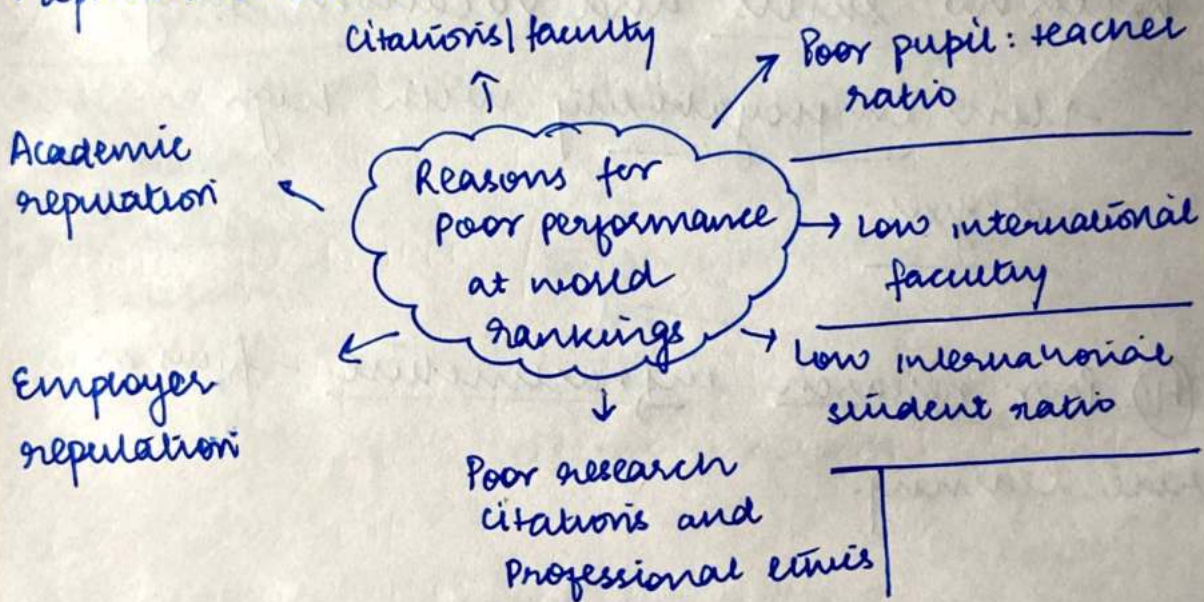 Citations/faculty
Poor pupil: teacher
ratio
Academic
reputation
Reasons for
poor performance
at world
rankings
Low international
faculty
Low international
student ratio
Employer
reputation
Poor research
citations and
Professional ethics
and learning.